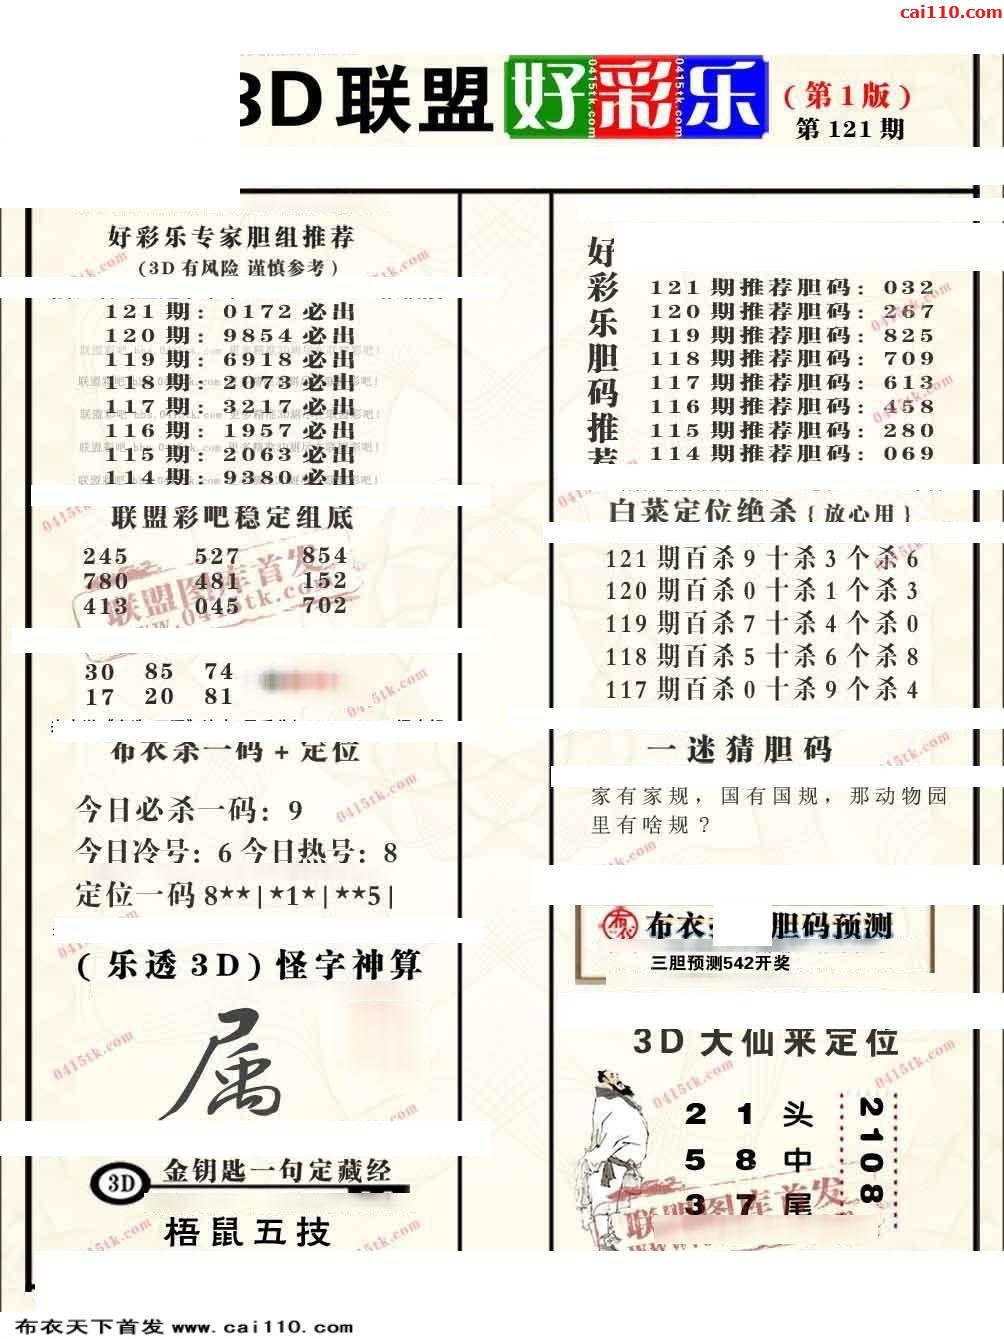 cai110.com
3D联盟 好彩乐
(第1版)
第 121 期
好彩乐专家胆组推荐
(3D 有风险 谨慎参考)
121 期: 0172 必出
120 期: 9854 必出
119 期: 6918 必出
118 期: 2973 必出
117 期: 3217 必出
116 期: 1957 必出
115 期: 2063 必出
114 期: 9380 必出
联盟彩吧稳定组底
245 527 854
780 481 152
413 045 702
30 85 74
17 20 81
布衣杀一码 + 定位
今日必杀一码: 9
今日冷号: 6 今日热号: 8
定位一码 8**|*1*|**5|
(乐透 3D) 怪字神算
属
3D 金钥匙一句定藏经
梧鼠五技
好彩乐胆码推荐
121 期推荐胆码: 032
120 期推荐胆码: 267
119 期推荐胆码: 825
118 期推荐胆码: 709
117 期推荐胆码: 613
116 期推荐胆码: 458
115 期推荐胆码: 280
114 期推荐胆码: 069
白菜定位绝杀{放心用}
121 期百杀 9 十杀 3 个杀 6
120 期百杀 0 十杀 1 个杀 3
119 期百杀 7 十杀 4 个杀 0
118 期百杀 5 十杀 6 个杀 8
117 期百杀 0 十杀 9 个杀 4
一迷猜胆码
家有家规，国有国规，那动物园
里有啥规？
布衣 布衣 胆码预测
三胆预测542开奖
3D 大仙来定位
2 1 头
5 8 中
3 7 尾
2108
联盟图库首发
0415tk.com
布衣天下首发 www.cai110.com